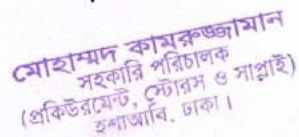 মোহাম্মদ কামরুজ্জামান
সহকারি পরিচালক
(প্রকিউরমেন্ট, স্টোরস ও সাপ্লাই)
ইশাআবি, ঢাকা।